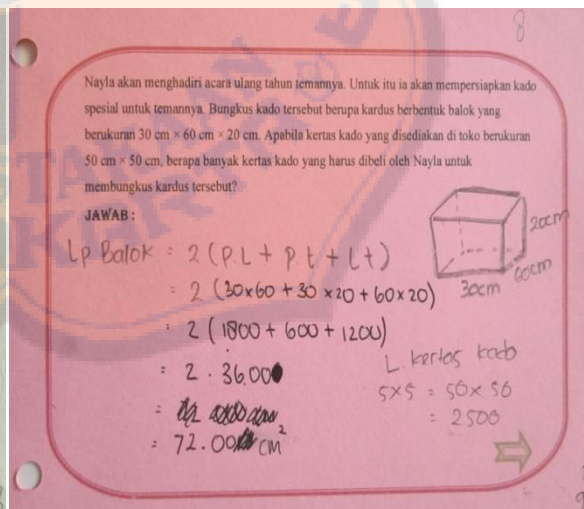 8
Nayla akan menghadiri acara ulang tahun temannya. Untuk itu ia akan mempersiapkan kado
spesial untuk temannya. Bungkus kado tersebut berupa kardus berbentuk balok yang
berukuran 30 cm × 60 cm × 20 cm. Apabila kertas kado yang disediakan di toko berukuran
50 cm × 50 cm, berapa banyak kertas kado yang harus dibeli oleh Nayla untuk
membungkus kardus tersebut?
JAWAB :
Lp Balok = 2 (P.L + P t + L t)
= 2 (30x60 + 30 x 20 + 60 x 20)
= 2 (1800 + 600 + 1200)
= 2 . 36.00
=
= 72.00 cm²
20cm
60cm
30cm
L. kertas kado
5x5 = 50 x 50
= 2500